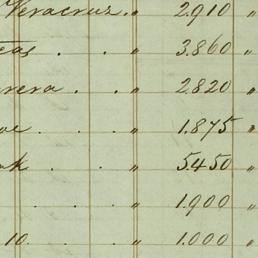 Veracruz . " 2.910 "
eas . . " 3.860 "
rera . . " 2.820 "
oe . . " 1.875 "
ok . . " 5.450 "
. . " 1.900 "
10 . . " 1.000 "